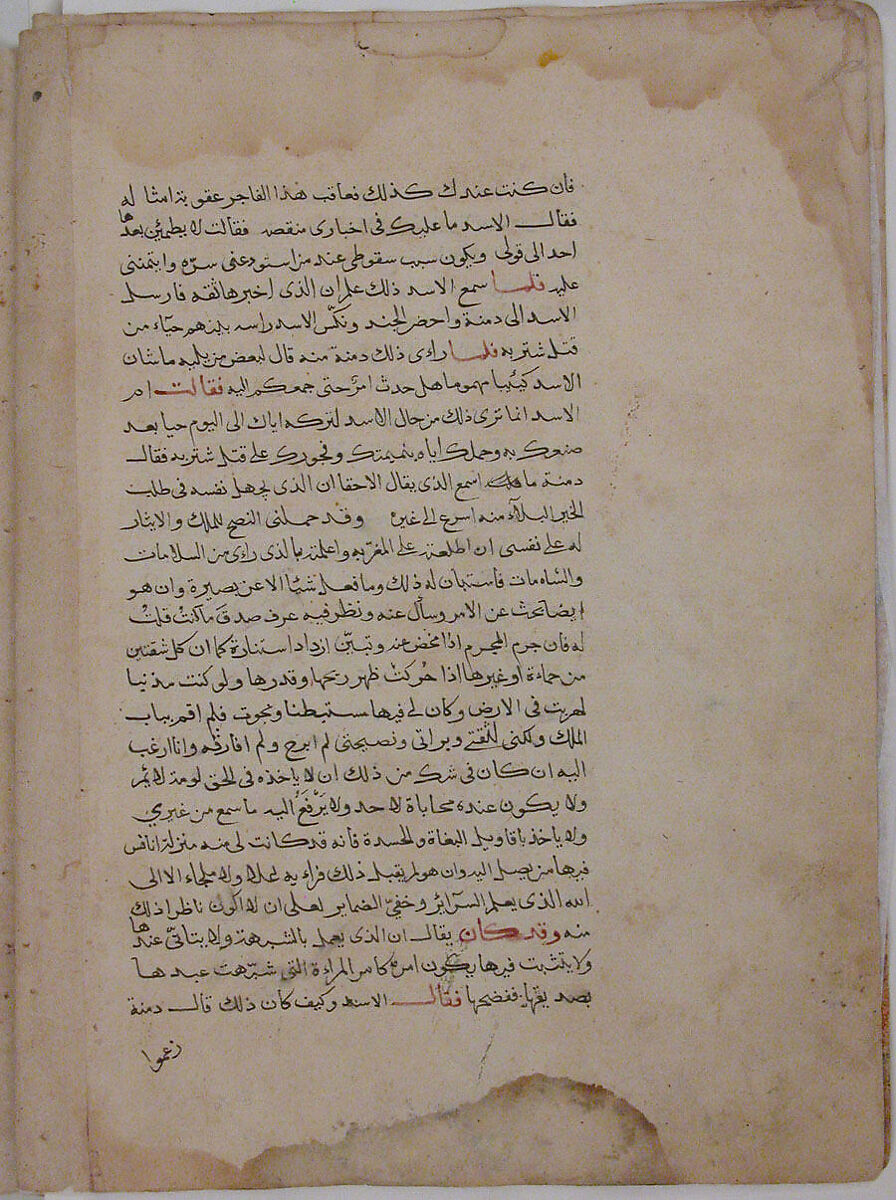 فان كنت عندك كذلك فعاقب هذا الفاجر عقوبة امثاله
فقال الاسد ما عليك فى اخبارى منقصه فقالت لا يطمئن بعدها
احد الى قولى ويكون سبب سقوطى عند من استودعنى سره وايتمننى
عليه فلما سمع الاسد ذلك علم ان الذى اخبرها ثقه فارسل
الاسد الى دمنة واحضر الجند ونكّس الاسد راسه بينهم حيآء من
قتل شتربه فلما راى ذلك دمنة منه قال لبعض من يليه ما شان
الاسد كيئبا مهموما هل حدث امرٌ حتى جمعكم اليه فقالت ام
الاسد انما ترى ذلك من حال الاسد لتركه اياك الى اليوم حيا بعد
صنعك به وحملك اياه بنميمتك وفجورك على قتل شتربه فقال
دمنة ما اسمع الذى يقال الا حقا ان الذى يجهل نفسه فى طلب
الخير البلآء منه اسرع الى غيره وقد حملنى النصح للملك والايثار
له على نفسى ان اطلعته على المغربه واعلمته بالذى راى من السلامات
والشاهمات فاستبان له ذلك وما فعل شيا الا عن بصيرة وان هو
ايضا بحث عن الامر وسأل عنه ونظر فيه عرف صدقَ ما كنتُ قلتُ
له فان جرم المجرم اذا فحص عنه وتبيّن ازداد استنارة كما ان كل شىء نتن
من حماءة او غيرها اذا حُركت ظهر ريحها وقدرها ولو كنت مذنبا
لهربت فى الارض وكان لى فيها ونجوت فلم اقم بباب
الملك ولكنى لثقتى وبراتى ونصيحتى لم ابرح ولم افارقه وانا ارغب
اليه ان كان فى شك من ذلك ان لا ياخذه فى الحق لومة لائم
ولا يكون عنده محاباة لاحد ولا يَرْفَعُ اليه ما سمع من غيرى
ولا ياخذ باقاويل البغاة والحسدة فانه قد كانت لى منه منزلة انافس
فيها من يصل اليه وان هو لم يقبل ذلك ولا ملجاء الا الى
الله الذى يعلم السرآئر وخفيّ الضماير لعلى ان لا اكون ناظرا ذلك
منه وقد كان يقال ان الذى يعمل بالشبهة ولا يتانّي عندها
ولا يتثبت فيها يكون امره كامر المراءة التى شبّهت عبدها
بصديقها ففضحها فقال الاسد وكيف كان ذلك قال دمنة
زعموا